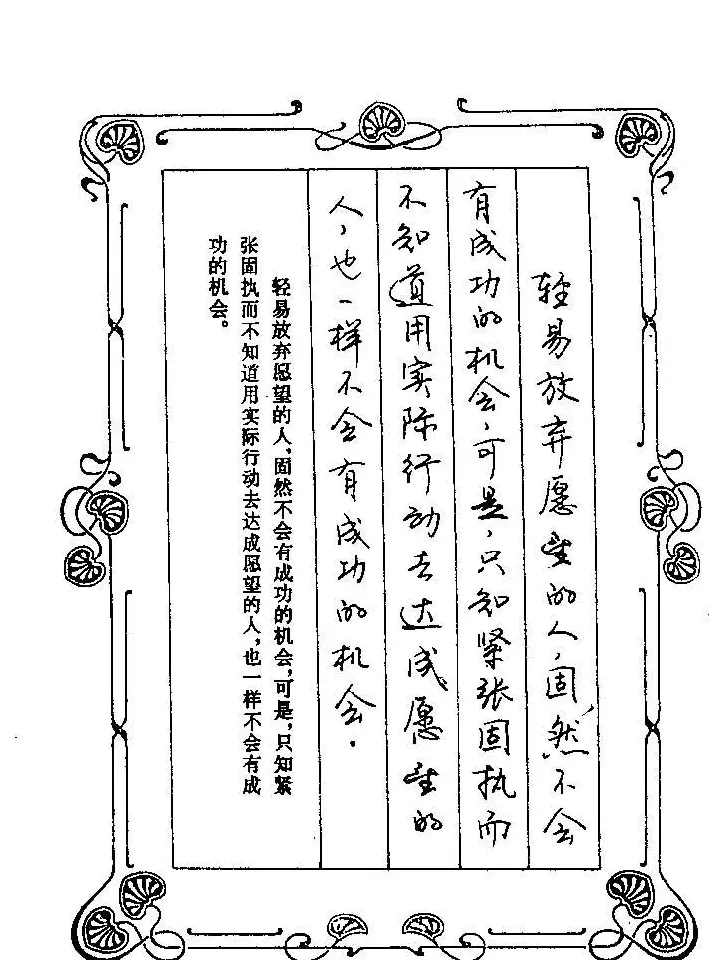 轻易放弃愿望的人,固然不会
有成功的机会,可是,只知紧张固执而
不知道用实际行动去达成愿望的
人,也一样不会有成功的机会.
轻易放弃愿望的人,固然不会有成功的机会,可是,只知紧
张固执而不知道用实际行动去达成愿望的人,也一样不会有成
功的机会。